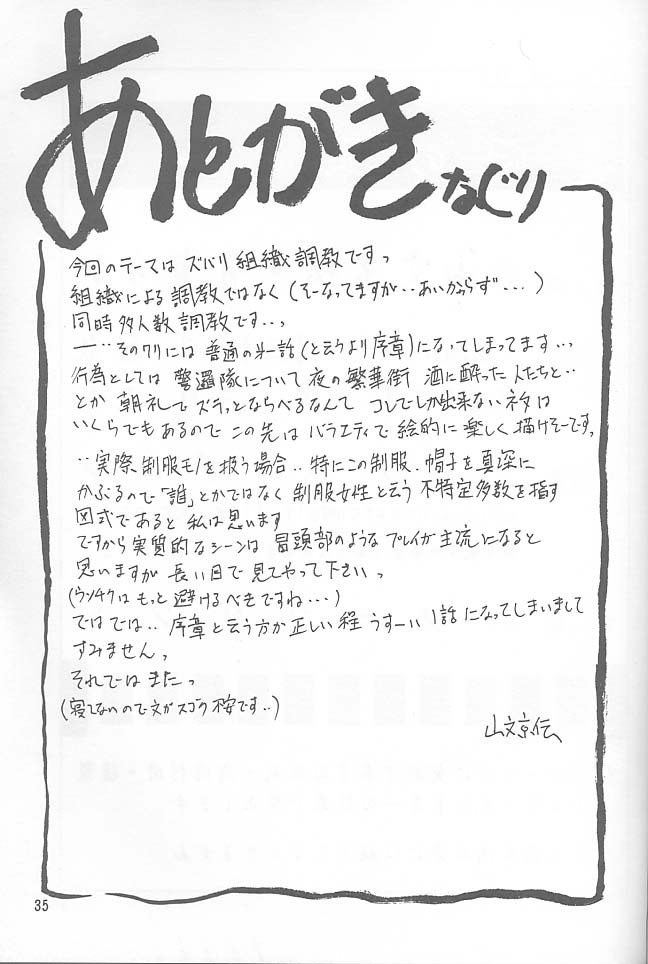 あとがきなぐり
今回のテーマは ズバリ 組織調教ですっ
組織による調教ではなく(そーなってますが‥あいかわらず‥‥)
同時多人数調教です‥っ
一‥そのワリには 普通の第一話(と云うより序章)になってしまってます‥っ
行為としては 警邏隊について 夜の繁華街 酒に酔った人たちと‥
とか 朝礼で ズラッとならべるなんて コレでしか出来ないネタは
いくらでもあるので この先は バラエティで 絵的に 楽しく 描けそーですっ
‥実際、制服モノを扱う場合‥特にこの制服、帽子を真深に
かぶるので「誰」とかではなく 制服女性と云う 不特定多数を指す
図式であると 私は思います
ですから実質的なシーンは 冒頭部のような プレイが主流になると
思いますが 長い目で見てやって下さいっ
(ウンチクはもっと避けるべきですね‥‥)
ではでは‥ 序章と云う方が正しい程 うすーい 1話になってしまいまして
すみませんっ
それではまたっ
(寝てないので文がスゴク不安です‥)
山文京伝
35